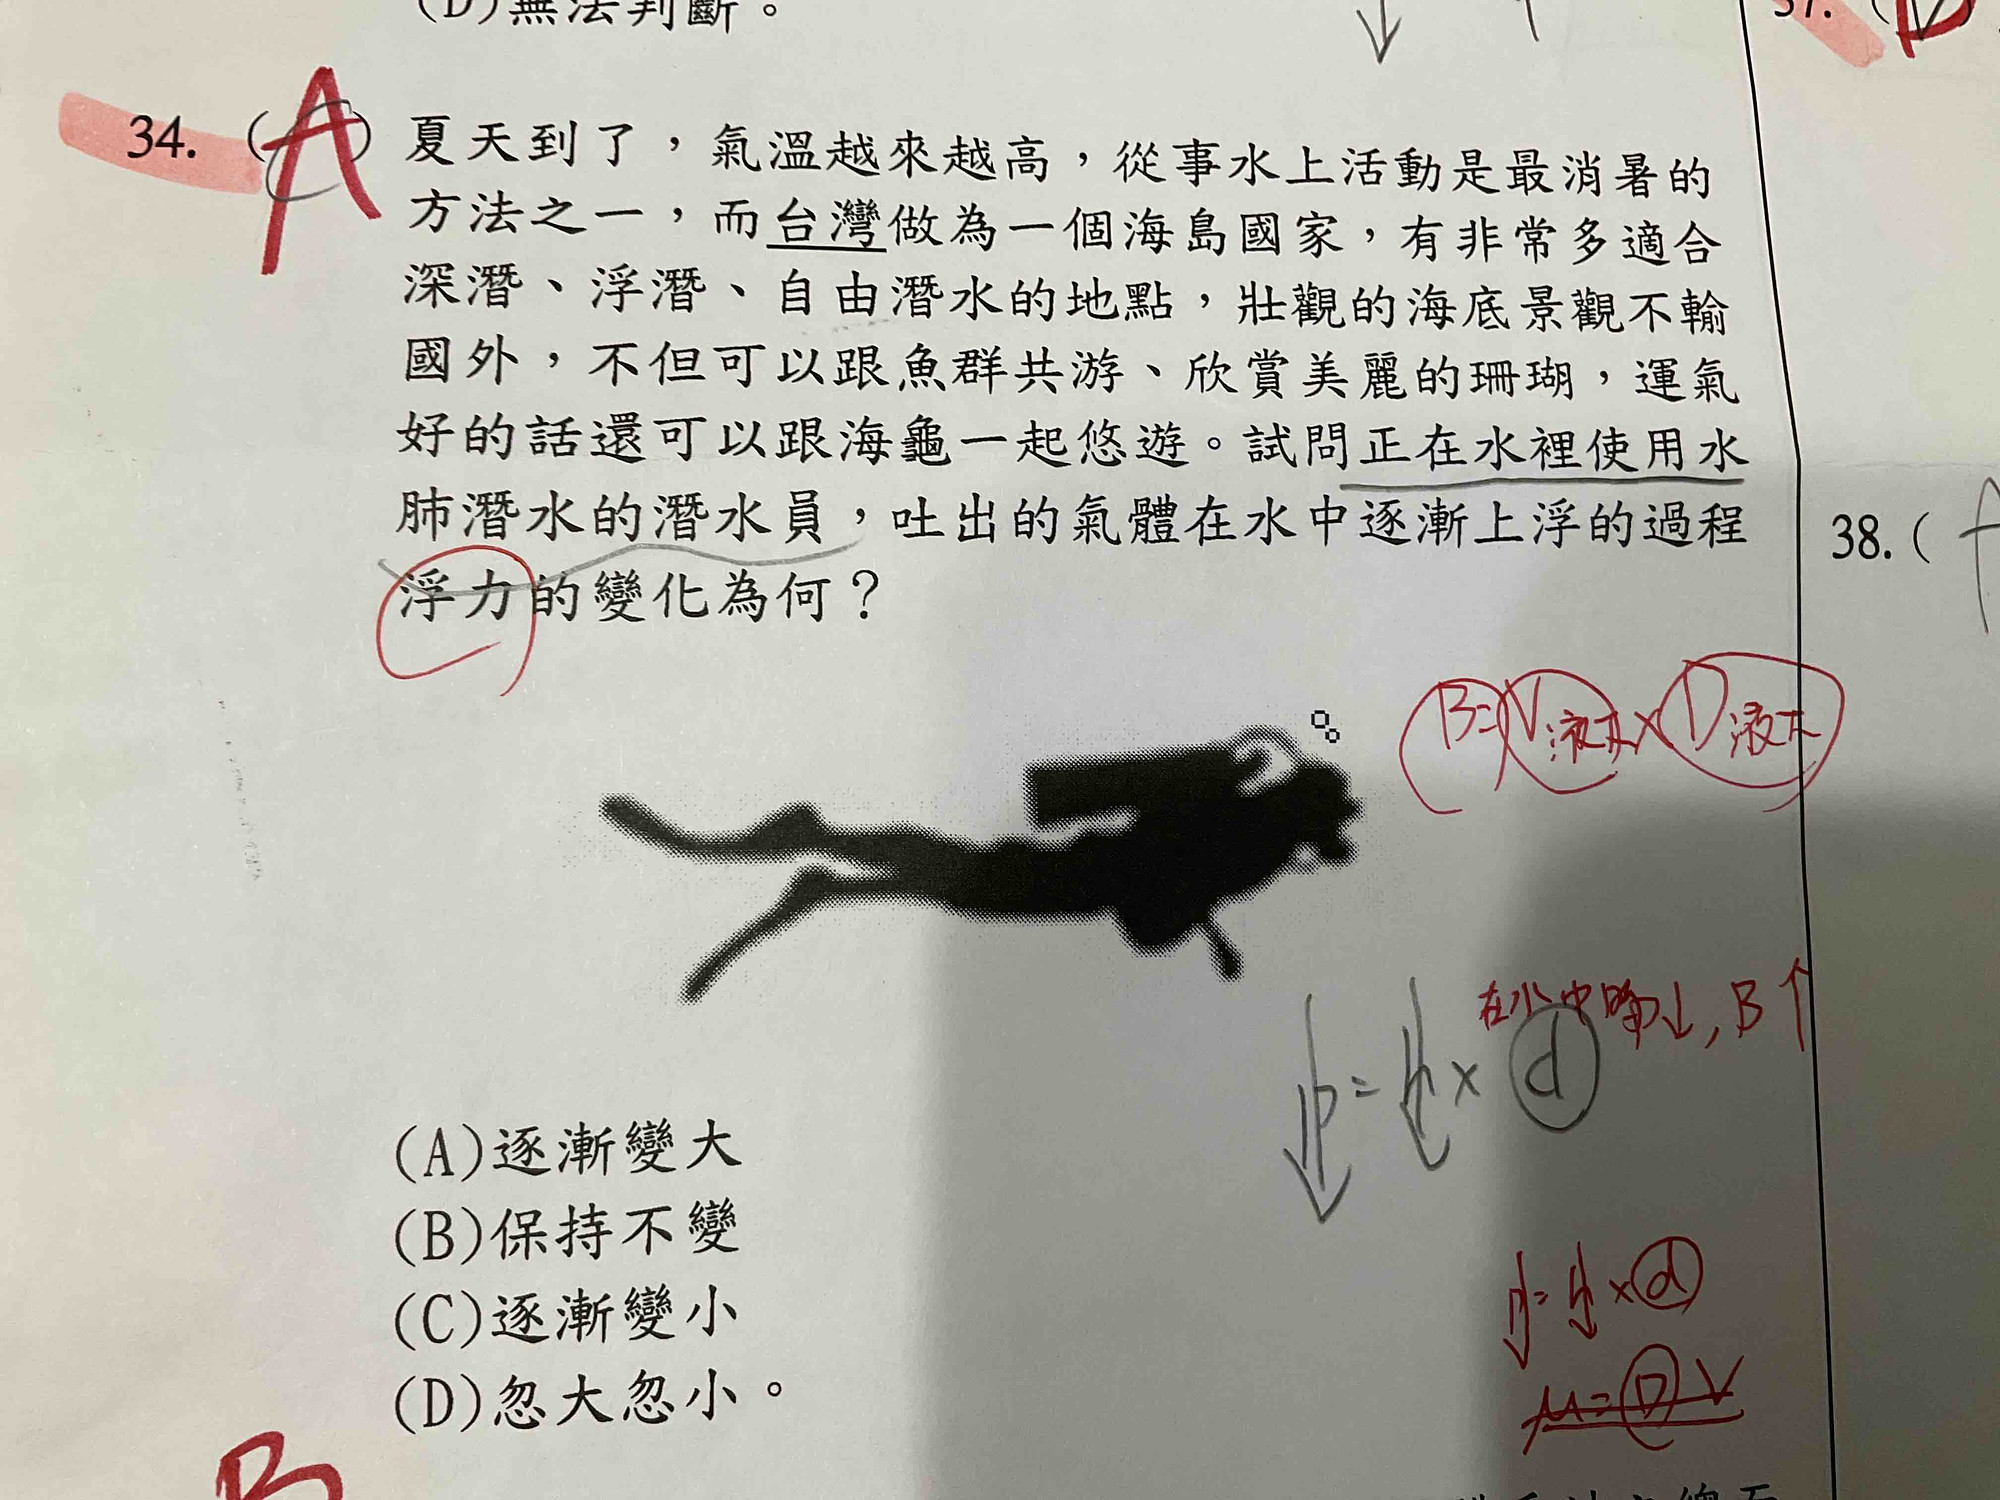 (D)無法判斷。
37. (
34. (A) 夏天到了，氣溫越來越高，從事水上活動是最消暑的
方法之一，而台灣做為一個海島國家，有非常多適合
深潛、浮潛、自由潛水的地點，壯觀的海底景觀不輸
國外，不但可以跟魚群共游、欣賞美麗的珊瑚，運氣
好的話還可以跟海龜一起悠遊。試問正在水裡使用水
肺潛水的潛水員，吐出的氣體在水中逐漸上浮的過程
浮力的變化為何？
38. (
B=V液下×D液
在水中 ↓, B↑
p=h×d
(A)逐漸變大
(B)保持不變
(C)逐漸變小
(D)忽大忽小。
p=h×d
M=DV
B